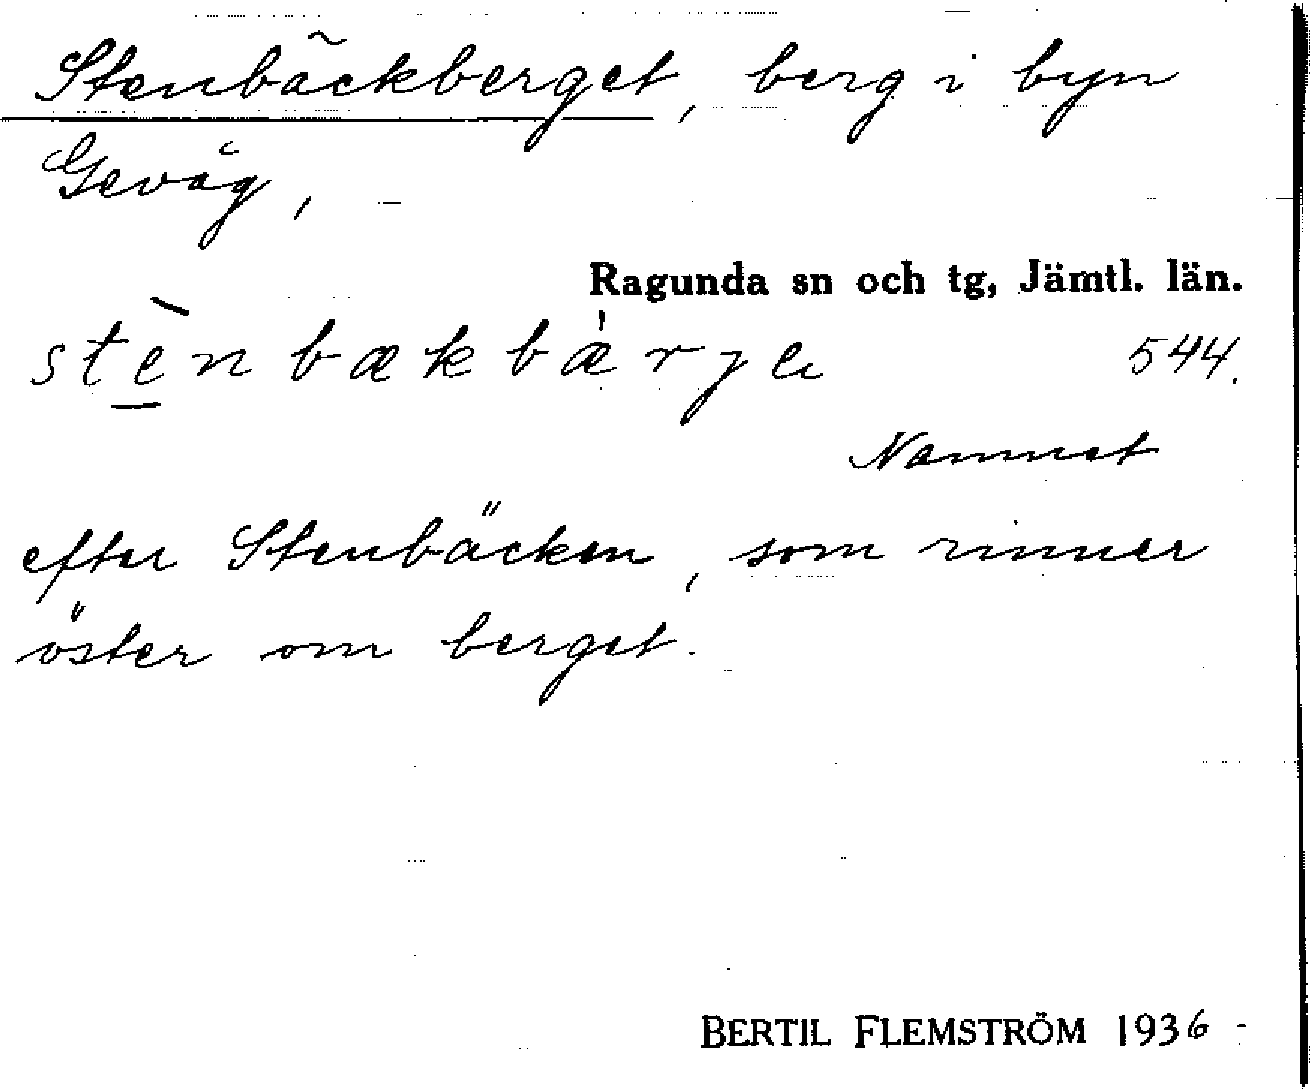 Stenbäckberget, berg i byn
Gevåg,
Ragunda sn och tg, Jämtl. län.
stè̱nbækbæ̀rje 544.
Namnet
efter Stenbäcken, som rinner
öster om berget.
BERTIL FLEMSTRÖM 1936